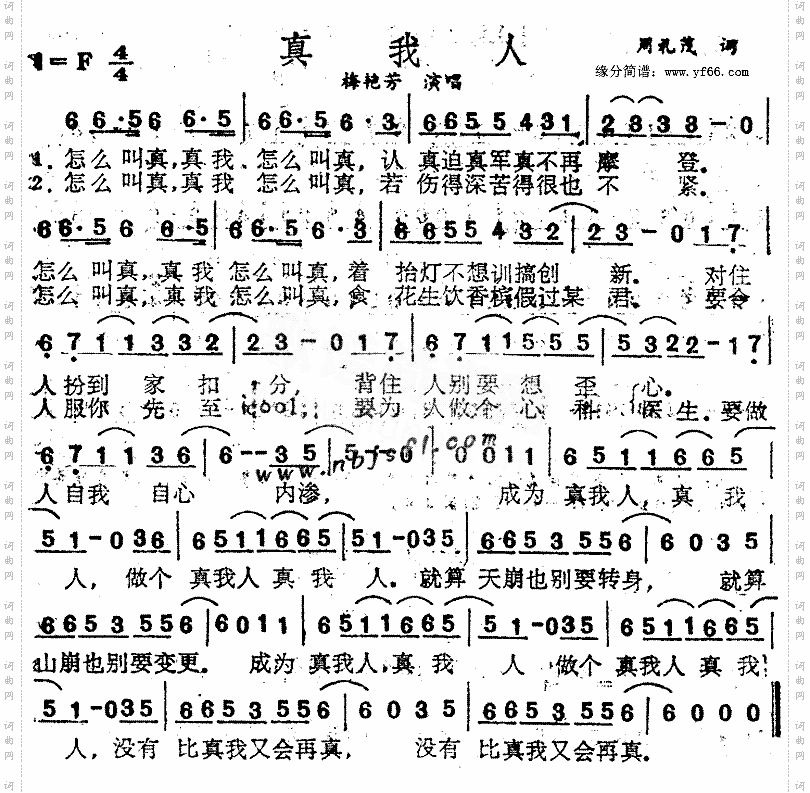 真我人
1=F 4/4
周礼茂 词
缘分简谱：www.yf66.com
梅艳芳 演唱
6 6 6·5 6 6·5 | 6 6·5 6·3 | 6 6 5 5 4 3 1 | 2 3 3 3 3 - 0
1. 怎么叫真,真我、怎么叫真,认 真迫真军真不再 摩 登.
2. 怎么叫真,真我 怎么叫真,若 伤得深苦得很也 不 紧.
6 6·5 6 6·5 | 6 6·5 6·3 | 6 6 5 5 4 3 2 | 2 3 - 0 1 7 |
怎么 叫真,真我 怎么叫真,着 抬灯不想训搞创 新. 对住
怎么 叫真,真我怎么叫真,食 花生饮香槟假过某 君. 要令
6 7 1 1 3 3 2 | 2 3 - 0 1 7 | 6 7 1 1 5 5 5 | 5 3 2 2 - 1 7
人扮到 家 扣 分, 背住 人别要 想 歪 心.
人服你 先 至 cool, 要为 人做个 心 科 医 生.要做
6 7 1 1 3 6 | 6 - - 3 5 | 5 0 | 0 0 1 1 | 6 5 1 1 6 6 5
www.nbjsfl.com
人自我 自心 内渗, 成为 真我人,真 我
5 1 - 0 3 6 | 6 5 1 1 6 6 5 | 5 1 - 0 3 5 | 6 6 5 3 5 5 6 | 6 0 3 5 |
人, 做个 真我人 真 我 人. 就算 天崩也别要转身, 就算
6 6 5 3 5 5 6 | 6 0 1 1 | 6 5 1 1 6 6 5 | 5 1 - 0 3 5 | 6 5 1 1 6 6 5
山崩也别要变更. 成为 真我人,真 我 人 做个 真我人 真 我
5 1 - 0 3 5 | 6 6 5 3 5 5 6 | 6 0 3 5 | 6 6 5 3 5 5 6 | 6 0 0 0
人,没有 比真我又会再真, 没有 比真我又会再真.
词曲网